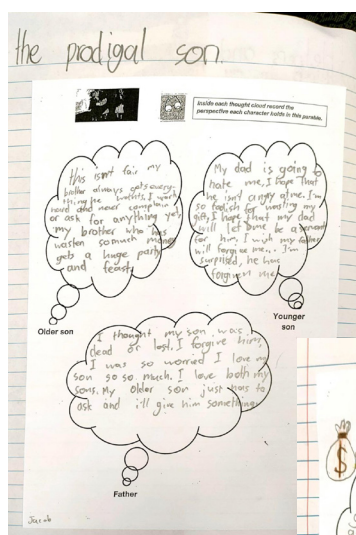 the prodigal son.
Inside each thought cloud record the
perspective each character holds in this parable.
this isn't fair my
brother always gets every-
thing he wants, I work
hard and never complain
or ask for anything yet
my brother who has
wasten so much money
gets a huge party
and feast
Older son
My dad is going to
hate me, I hope that
he isn't angry at me. I'm
so foolish for wasting my
gift, I hope that my dad
will let me be a servant
for him. I wish my father
will forgive me... I'm
surprised, he has
forgiven me
Younger
son
I thought my son was
dead or lost, I forgive him,
I was so worried I love my
son so so much. I love both my
sons. My older son just has to
ask and i'll give him something
Father
Jacob
$